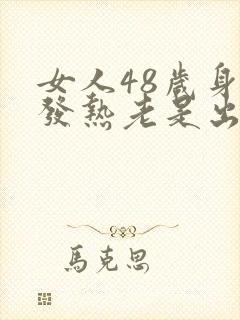 女人48歲身
發熱老是出
馬克思